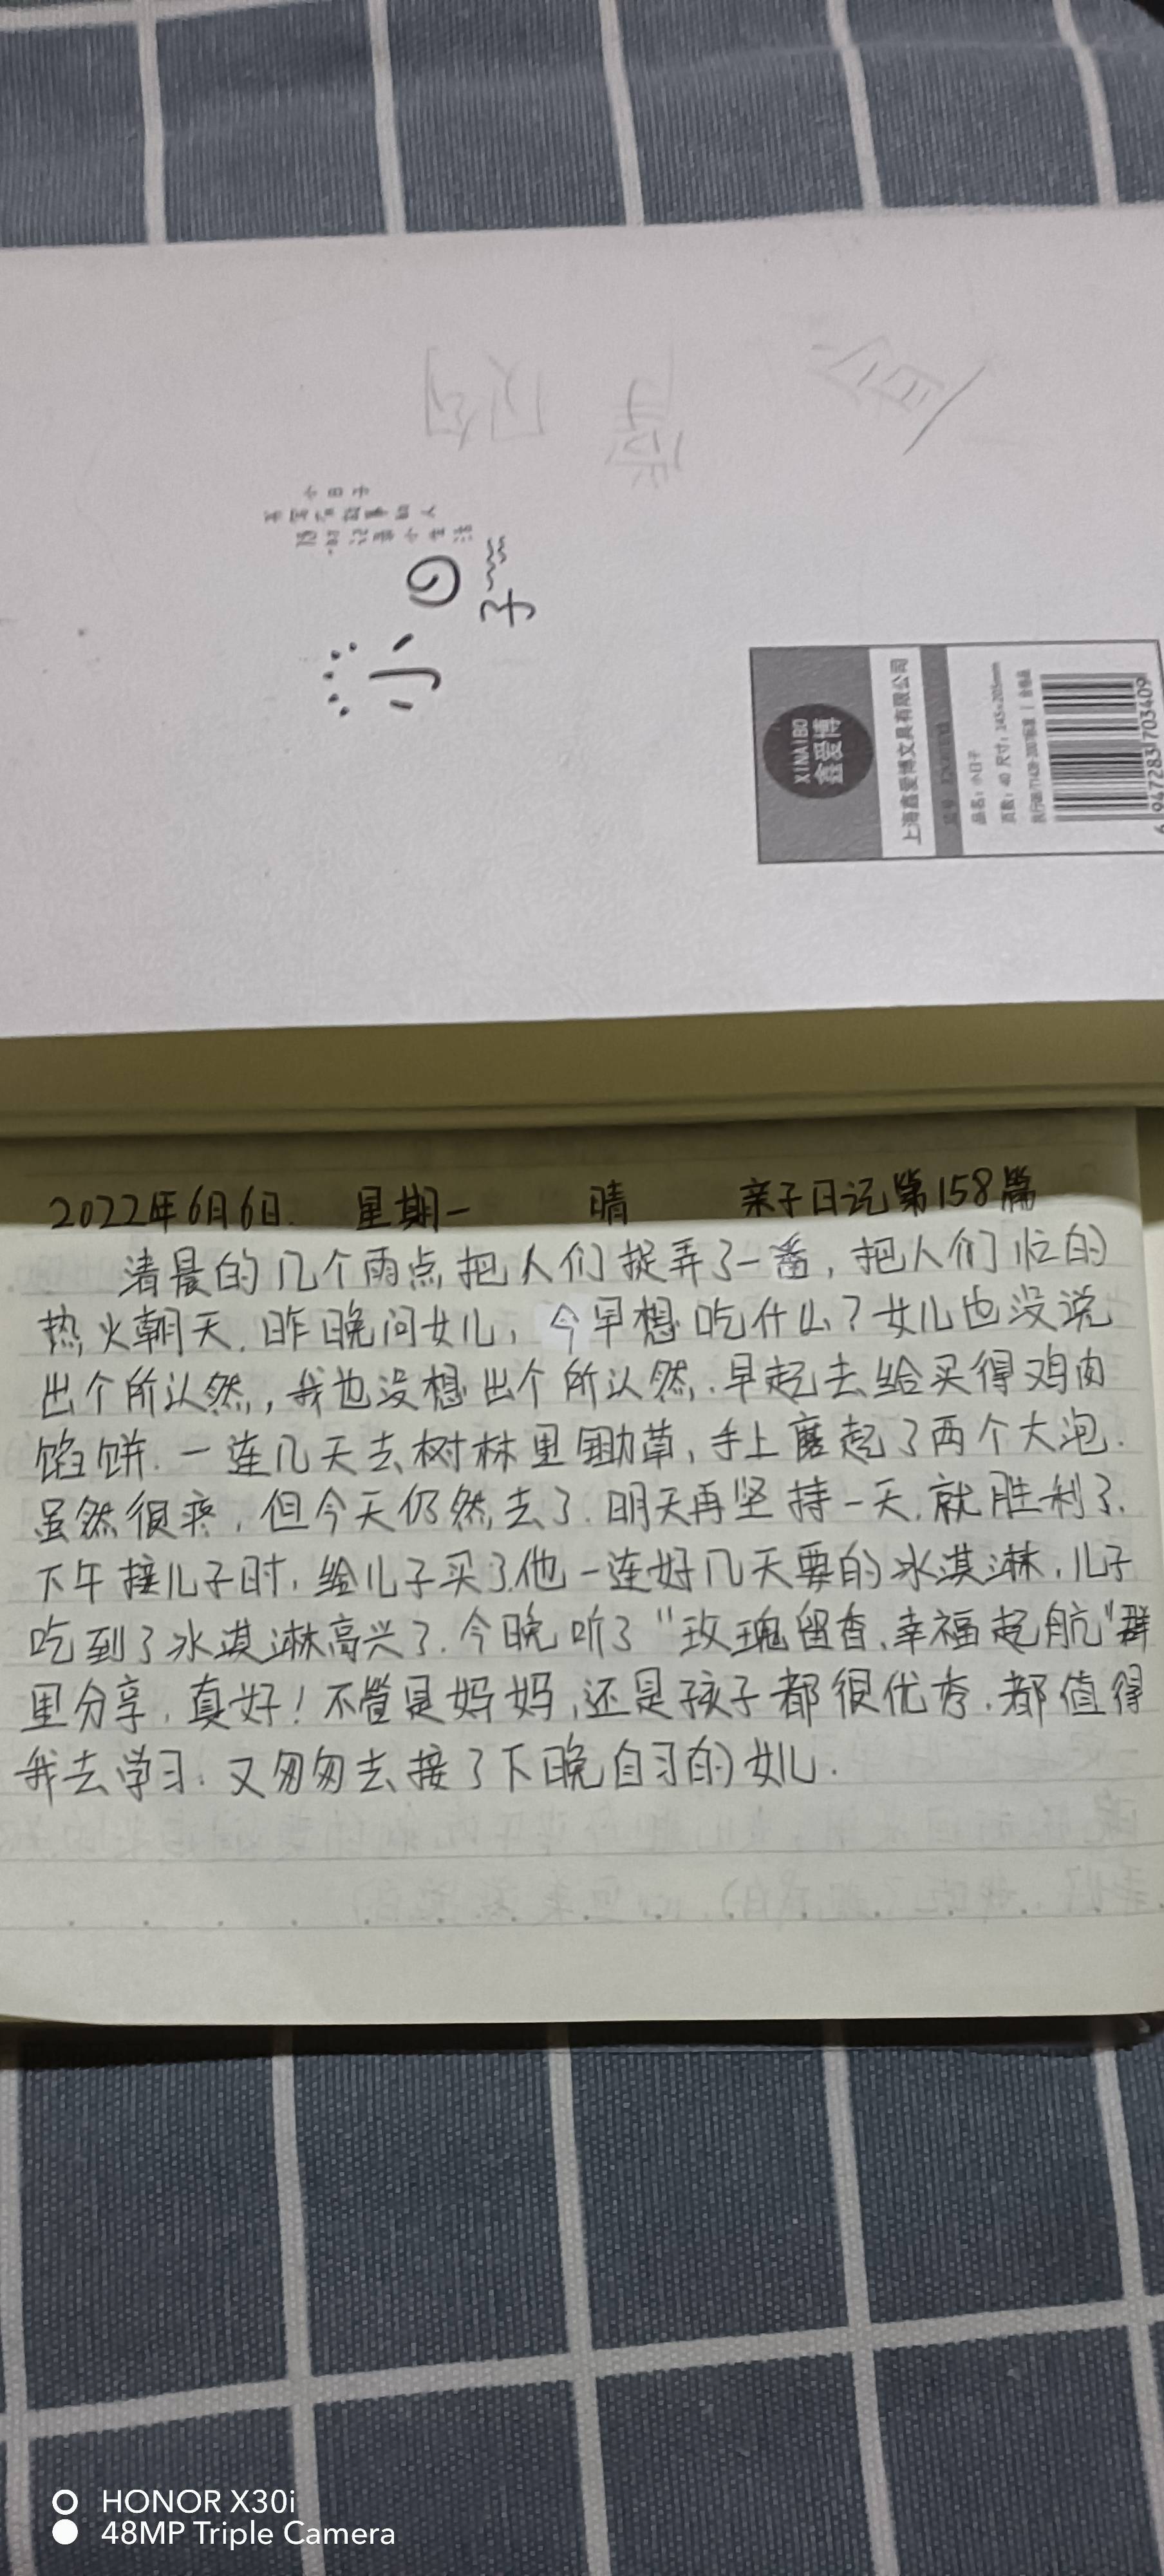 小日子
随时记录小生活
小日子
XINAIBO
鑫爱博
上海鑫爱博文具有限公司
品名：小日子
页数：40 尺寸：143×205mm
6 947283 703409
2022年6月6日. 星期一 晴 亲子日记第158篇
清晨的几个雨点把人们捉弄了一番，把人们忙的
热火朝天.昨晚问女儿，今早想吃什么？女儿也没说
出个所以然，我也没想出个所以然.早起去给买得鸡肉
馅饼.一连几天去树林里锄草，手上磨起了两个大泡.
虽然很疼，但今天仍然去了.明天再坚持一天.就胜利了.
下午接儿子时，给儿子买了他一连好几天要的冰淇淋，儿子
吃到了冰淇淋高兴了.今晚听了“玫瑰留香、幸福起航”群
里分享，真好！不管是妈妈，还是孩子都很优秀.都值得
我去学习.又匆匆去接了下晚自习的女儿.
HONOR X30i
48MP Triple Camera